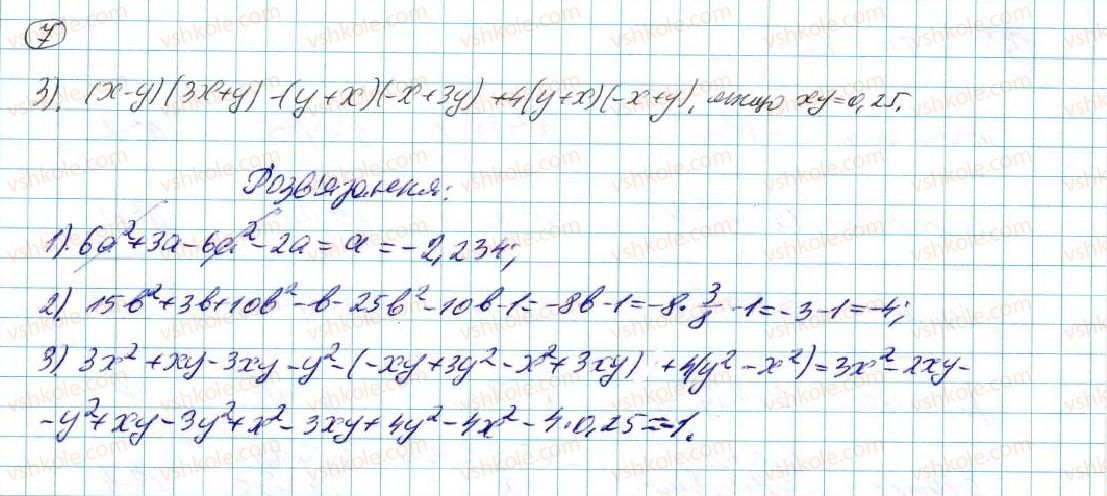 7
3). (x-y)(3x+y)-(y+x)(-x+3y)+4(y+x)(-x+y), якщо xy=0,25.
Розв'язання:
1). 6a²+3a-6a²-2a=a=-2,234;
2). 15b²+3b+10b²-b-25b²-10b-1=-8b-1=-8·3/8-1=-3-1=-4;
3) 3x²+xy-3xy-y²-(-xy+3y²-x²+3xy)+4(y²-x²)=3x²-2xy-
-y²+xy-3y²+x²-3xy+4y²-4x²-4·0,25=-1.
vshkole.com